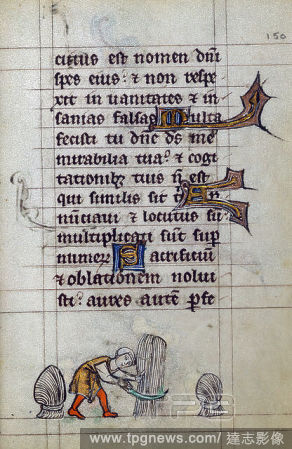 150
cuius est nomen dñi
spes eius: ⁊ non respe
xit in uanitates ⁊ in
sanias falsas Multa
fecisti tu dñe ds me
mirabilia tua: ⁊ cogi
tationibꝫ tuis ñ est
qui similis sit t An
nũtiaui ⁊ locutus sũ
multiplicati sũt sup
numerũ Sacrificiũ
⁊ oblationem nolui
sti: aures autẽ pfe
www.tpgnews.com/ 達志影像